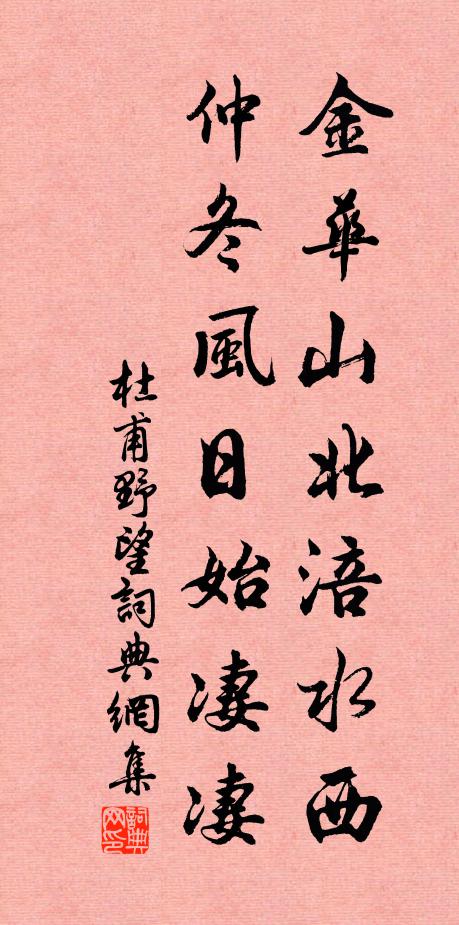 金華山北涪水西
仲冬風日始凄凄
杜甫野望詞典網集
詞典网印